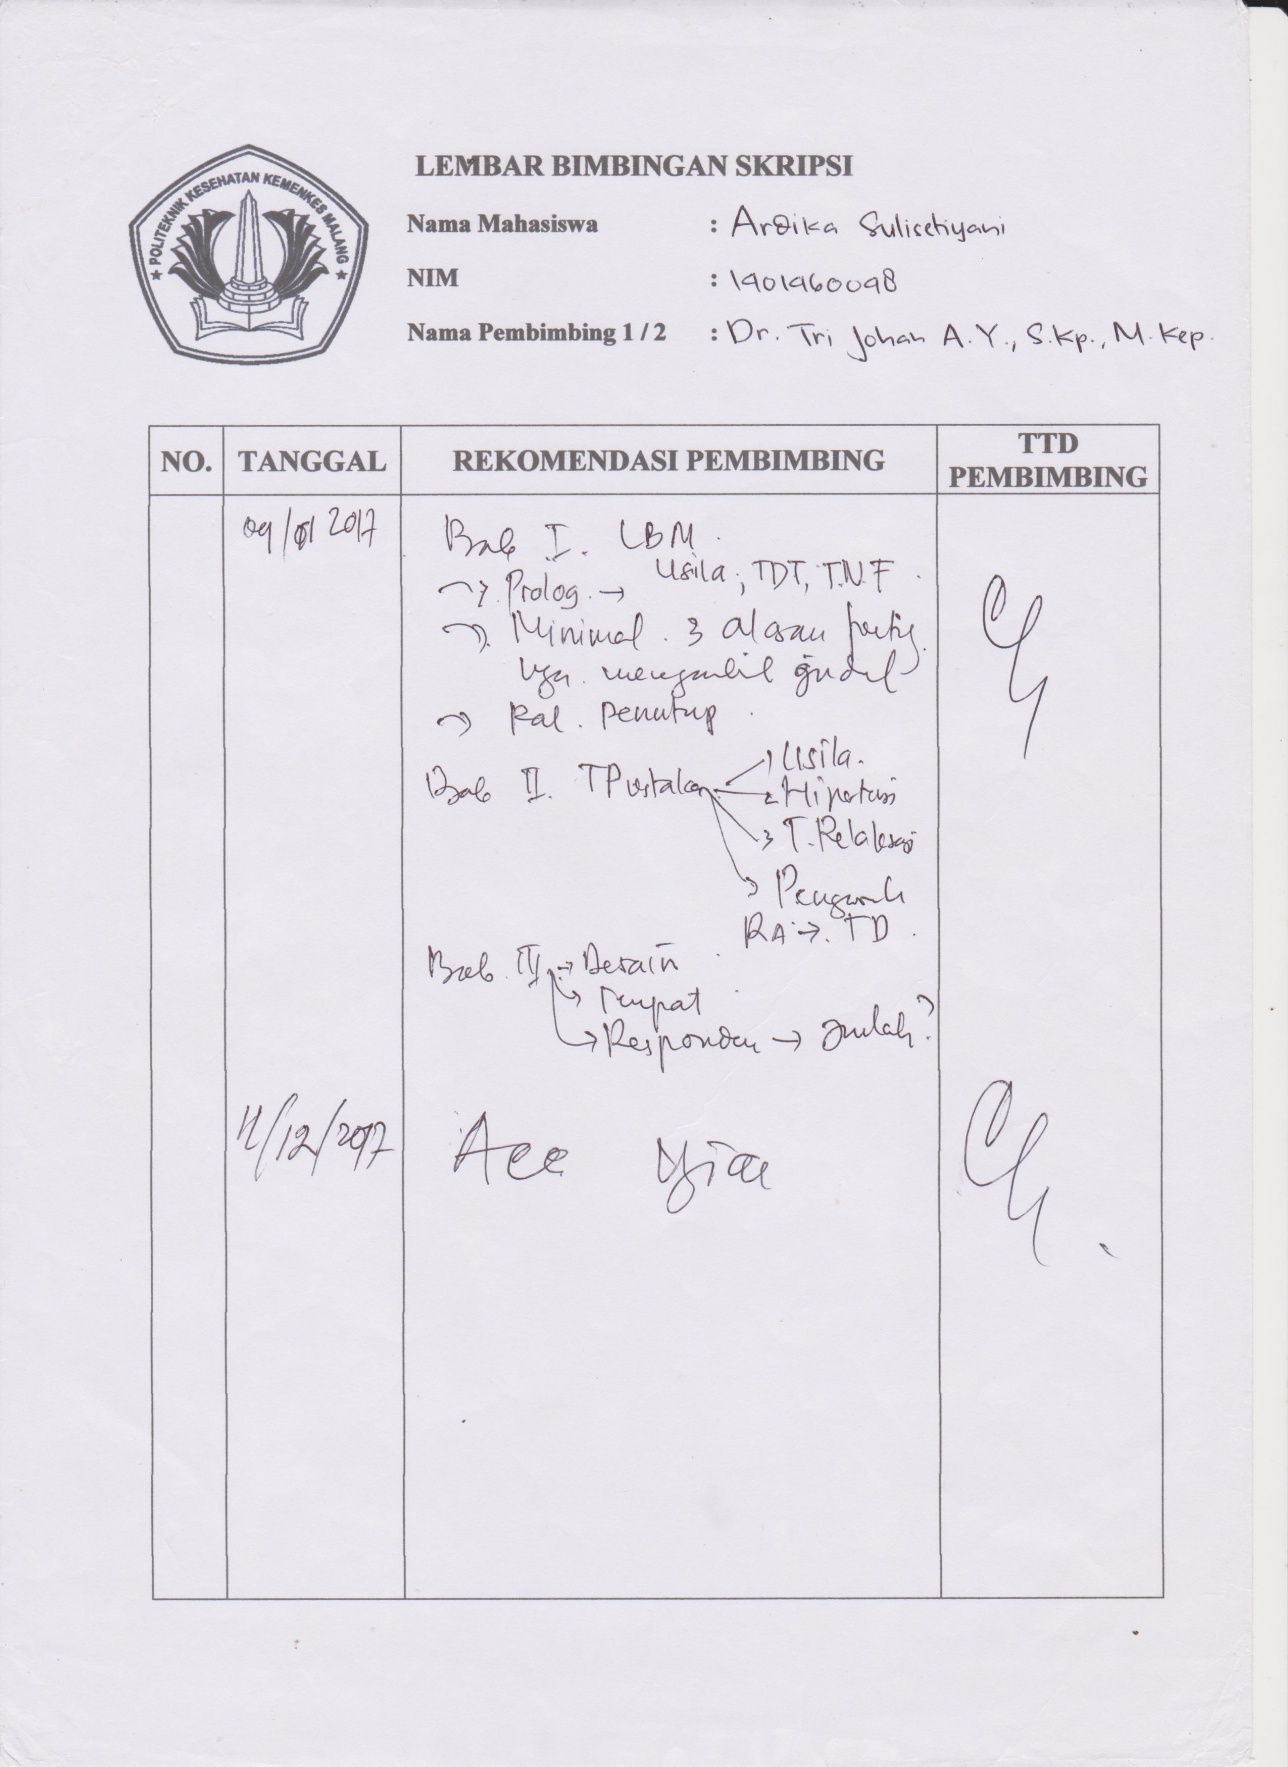 POLITEKNIK KESEHATAN KEMENKES MALANG
LEMBAR BIMBINGAN SKRIPSI
Nama Mahasiswa : Ardika Sulisetiyani
NIM : 1401460048
Nama Pembimbing 1 / 2 : Dr. Tri Johan A.Y., S.Kp., M.Kep.
NO. TANGGAL REKOMENDASI PEMBIMBING TTD PEMBIMBING
09/01 2017 Bab I. LBM.
→ Prolog. → Usila, TDT, T.N.F.
→ Minimal. 3 alasan
mengambil judul
→ Kal. Penutup.
Bab II. TPustaka → Usila.
→ Hipertensi
→ T. Relaksasi
→ Pengaruh
RA → TD.
Bab III → Desain
→ Tempat
→ Responden → Jumlah?
/12/2017 Acc Ujian